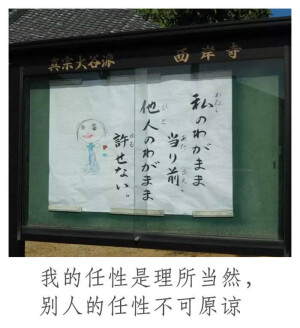 真宗大谷派 西岸寺
私のわがまま
わたし
当り前
あた まえ
他人のわがまま
ひと
許せない。
ゆる
我的任性是理所当然，
别人的任性不可原谅